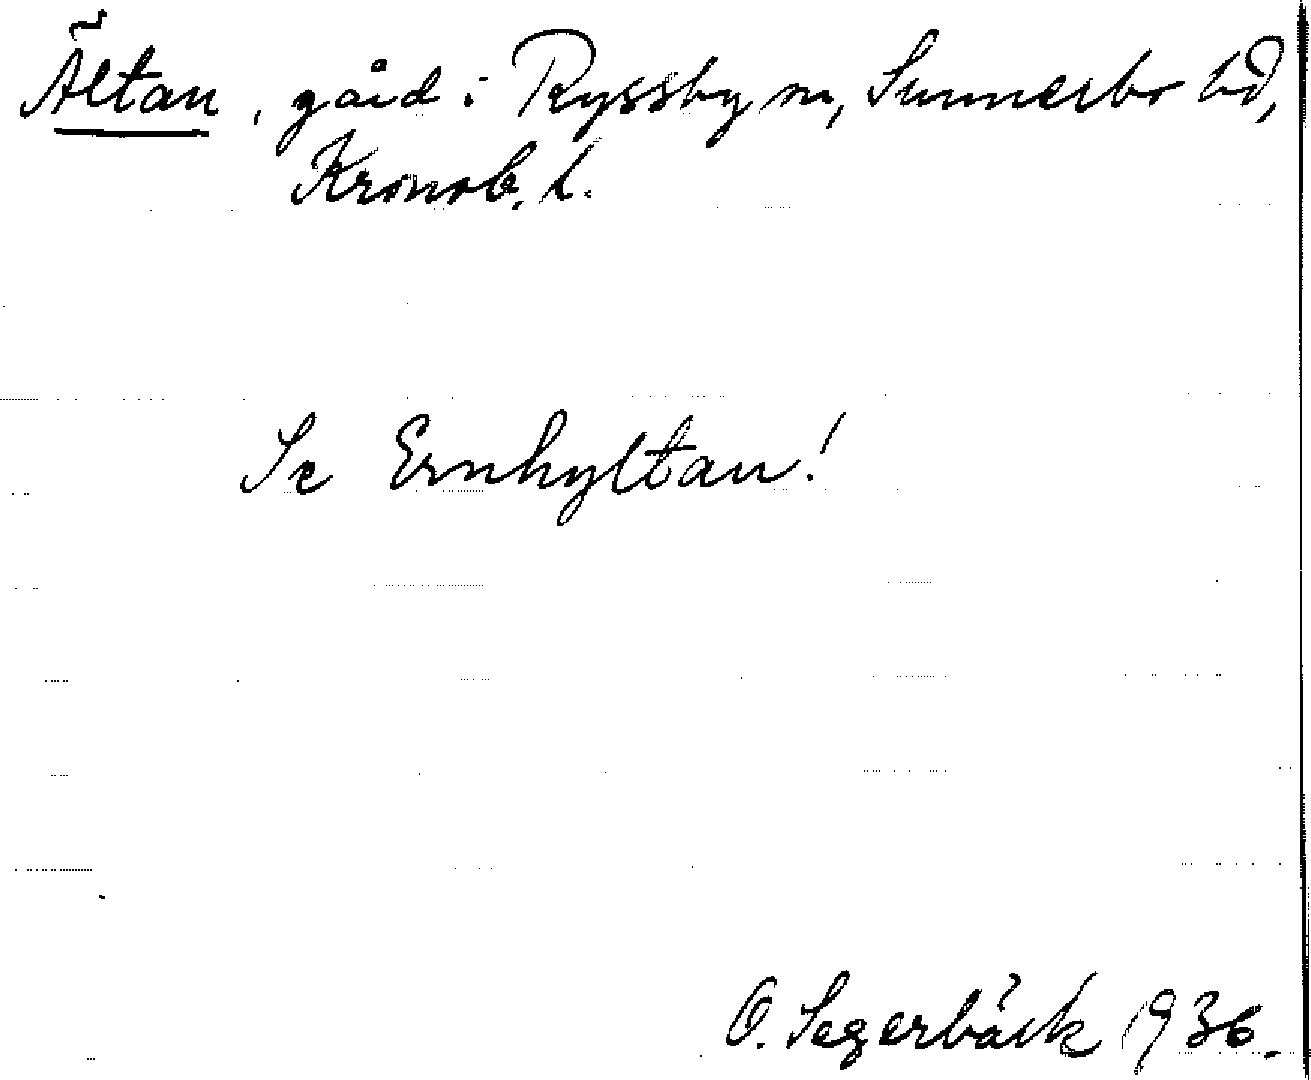 Ältan, gård i Ryssby sn, Sunnerbo hd,
Kronob. l.
Se Ernhyltan!
O. Segerbäck 1936.